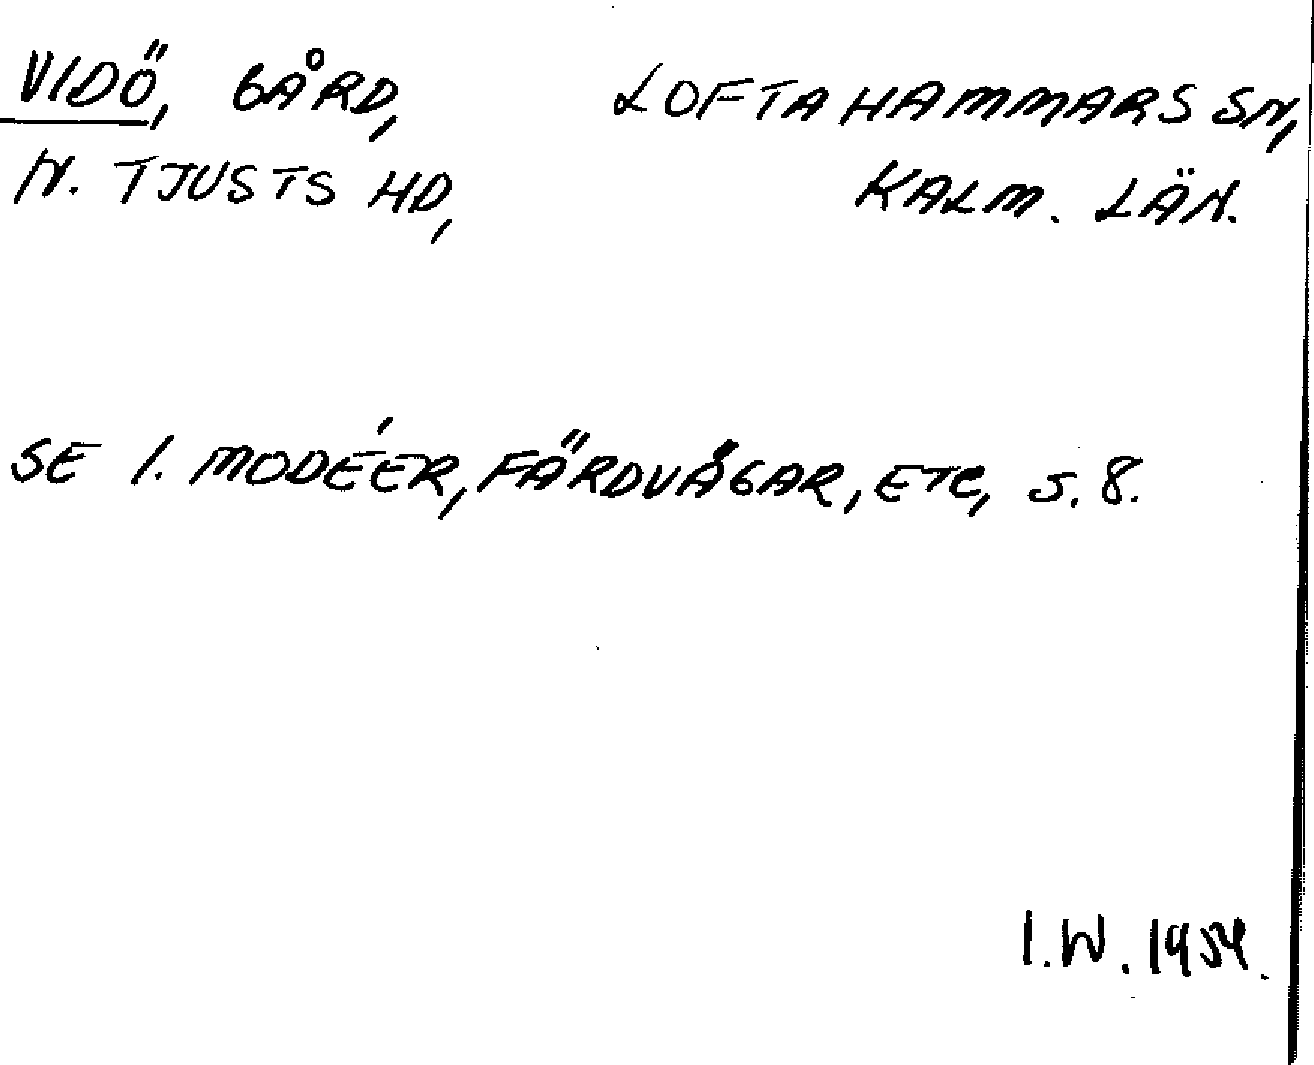 VIDÖ, GÅRD, LOFTAHAMMARS SN,
N. TJUSTS HD, KALM. LÄN.
SE I. MODÉER, FÄRDVÄGAR, ETC, S. 8.
I.W. 1954.